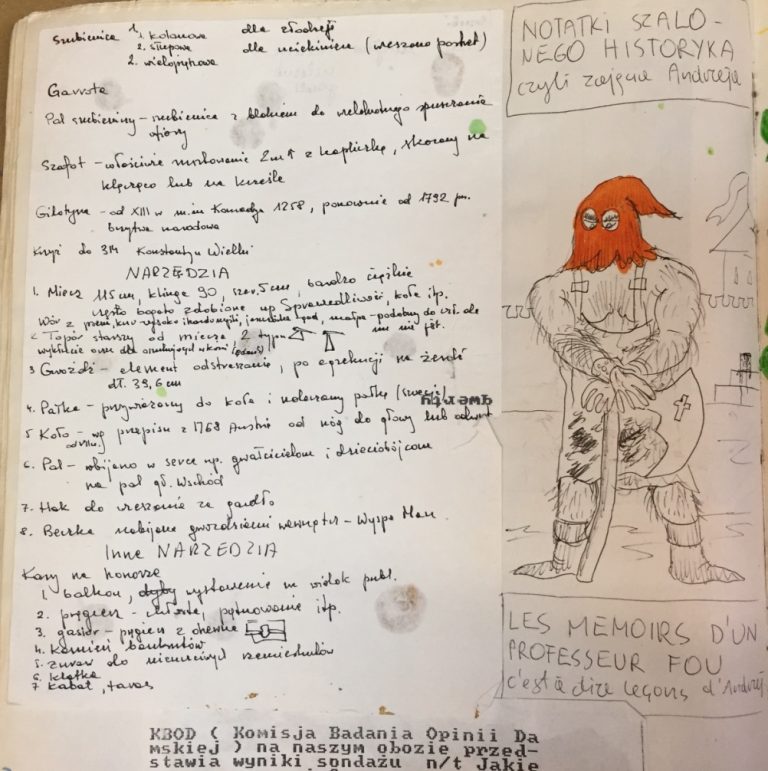 Szubienica 1. kolanowa dla złodzieji
2. słupowa dla uciekinierów (wieszano portret)
2. wielojrzyowa
Garrota
Pal szubieniczny – szubienica z blokiem do spuszczania
ofiary
Szafot – właściwie 2m z kapliczką, skazany na
klęcząco lub na krześle
Gilotyna – od XIII w m.in 1258, ponownie od 1792 jw.
brzytwa narodowa
Krzyż do 314 Konstantyn Wielki
NARZĘDZIA
1. Miecz 115cm, klinga 90, szer. 5cm, bardzo
często bogato zdobione np Sprawedliwość, koła itp.
Wór z psem, małpa – podobny do
2. Topór starszy od miecza 2 typy
3 Gwóźdź – element odstraszania, po egzekucji na żerdź
dł. 39,6 cm
4. Pałka – przywiązany do koła i pałką
5 Koło – wg przepisu z 1768 Austria od nóg do głowy lub odwrot
6. Pal – wbijano w serce np. gwałcicielom i dzieciobójcom
na pal gł. Wschód
7. Hak do wieszania za gardło
8. Beczka nabijana gwoździami wewnątrz – Wyspa Man
Inne NARZĘDZIA
Kary na honorze
1. balkon, wystawienie na widok publ.
2. pręgierz – chłosta, piętnowanie itp.
3. gąsior – pręgierz z drewna
4. Kamień bankrutów
5. żuraw do nieuczciwych rzemieślników
6. klatka
7 kabat, taras
NOTATKI SZALO-
NEGO HISTORYKA
czyli zajęcia Andrzeja
LES MEMOIRS D'UN
PROFESSEUR FOU
c'est à dire leçons d'Andrzej
KBOD ( Komisja Badania Opinii Da
mskiej ) na naszym obozie przed-
stawia wyniki sondażu n/t Jakie